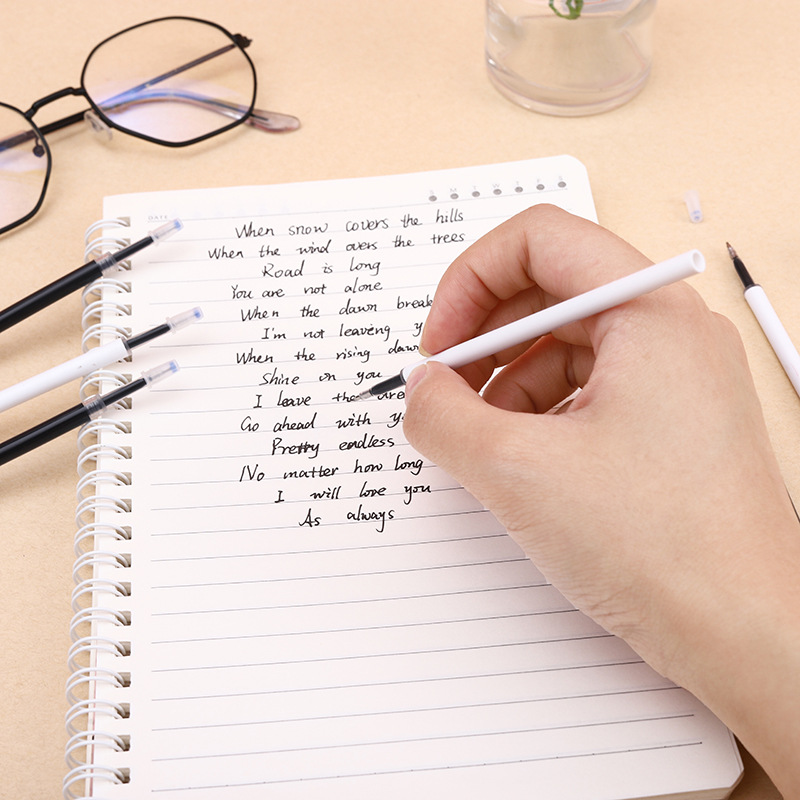 DATE
S M T W T F S
When snow covers the hills
When the wind overs the trees
Road is long
You are not alone
When the dawn break
I'm not leaving
When the rising dawn
Shine on you
I leave the
Go ahead with
Pretty endless
No matter how long
I will love you
As always